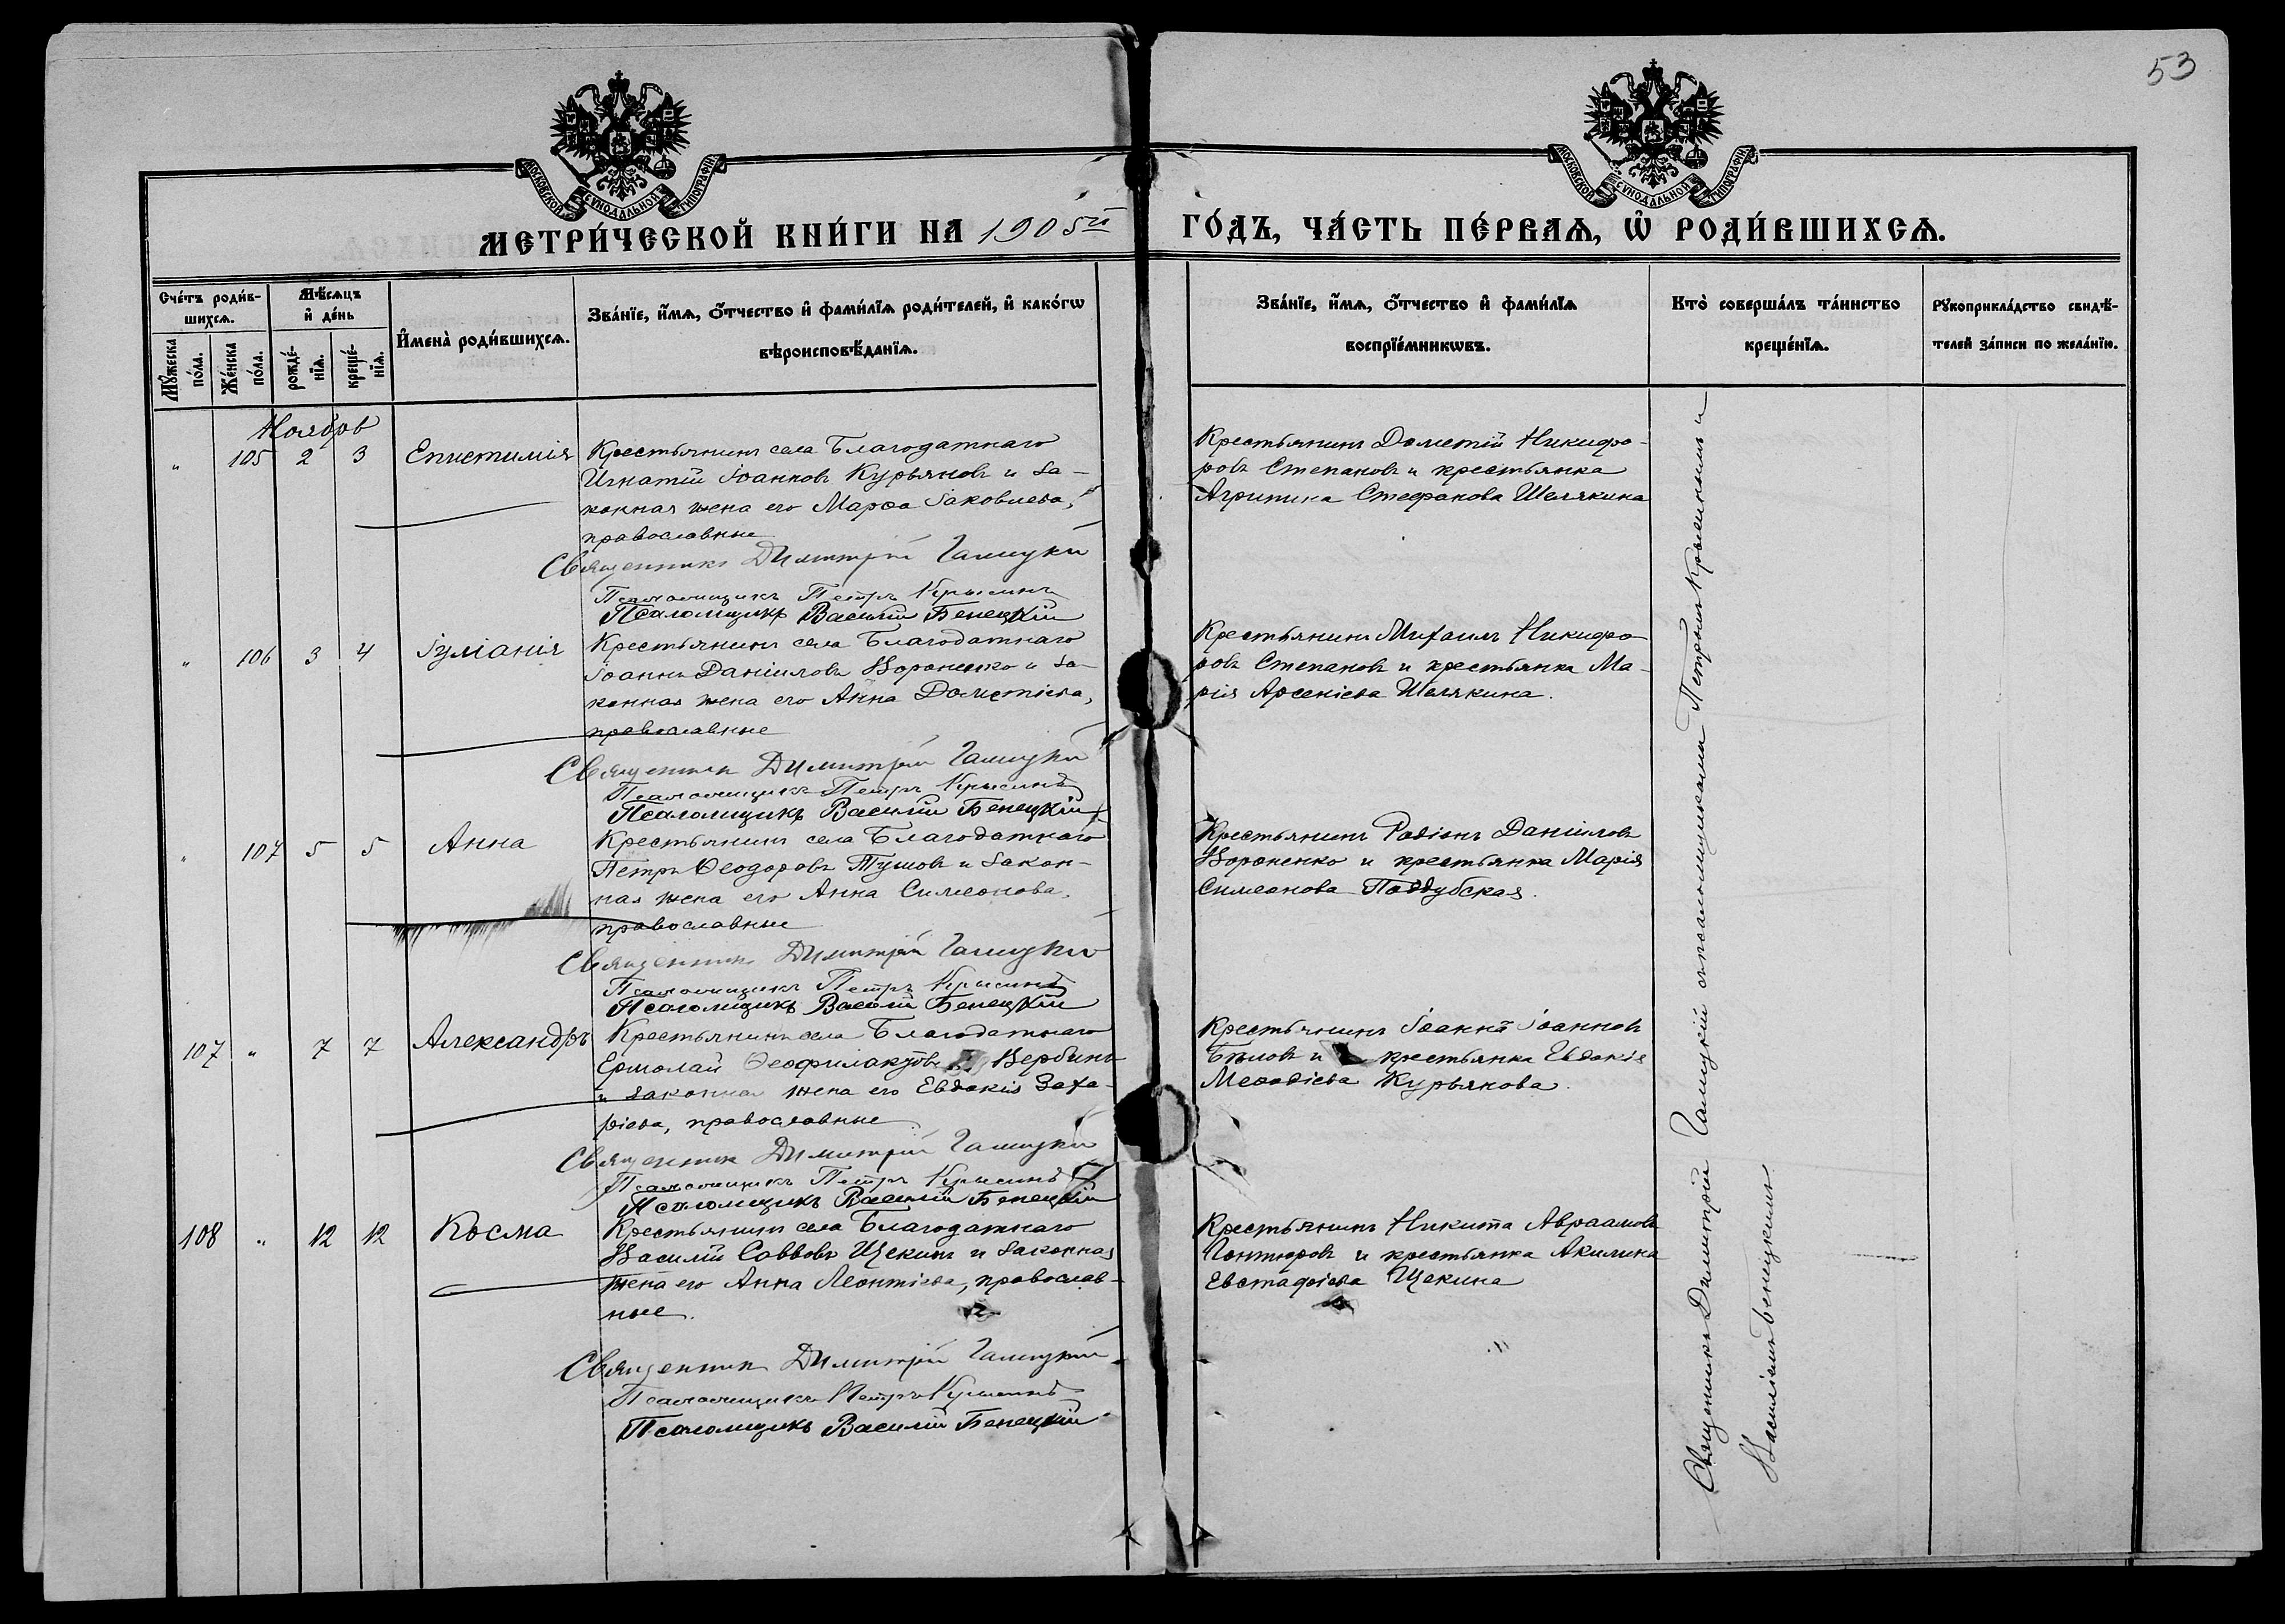 53
МОСКОВСКОЙ СѴНОДАЛЬНОЙ ТИПОГРАФІИ
МОСКОВСКОЙ СѴНОДАЛЬНОЙ ТИПОГРАФІИ
МЕТРИ́ЧЕСКОЙ КНИ́ГИ НА 1905й ГО́ДЪ, ЧА́СТЬ ПЕ́РВАѦ, Ѡ҆ РОДИ́ВШИХСѦ.
Сче́тъ роди́в-
шихсѧ.
Мѣ́сѧцъ
и҆ де́нь
Мꙋ́жеска
по́ла.
Же́нска
по́ла.
рожде́-
нїѧ.
креще́-
нїѧ.
И҆мена̀ роди́вшихсѧ.
Зва́нїе, и҆́мѧ, ѻ҆́тчество и҆ фами́лїѧ роди́телей, и҆ како́гѡ
вѣроисповѣ́данїѧ.
Зва́нїе, и҆́мѧ, ѻ҆́тчество и҆ фами́лїѧ
воспрїе́мникѡвъ.
Кто̀ соверша́лъ та́инство
креще́нїѧ.
Рꙋкоприкла́дство свидѣ́-
телей за́писи по жела́нїю.
Ноябрь
" 105 2 3 Епистимія
Крестьянинъ села Благодатнаго
Игнатій Іоанновъ Курьяновъ и за-
конная жена его Марѳа Іаковлева,
православные
Священникъ Димитрій Галицкій
Псаломщикъ Петръ Крысинъ
Псаломщикъ Василій Бенецкій
Крестьянинъ Дометій Никифо-
ровъ Степановъ и крестьянка
Агрипина Стефанова Шелякина
" 106 3 4 Іуліанія
Крестьянинъ села Благодатнаго
Іоаннъ Даніиловъ Вороненко и за-
конная жена его Анна Дометіева,
православные
Священникъ Димитрій Галицкій
Псаломщикъ Петръ Крысинъ
Псаломщикъ Василій Бенецкій
Крестьянинъ Михаилъ Никифо-
ровъ Степановъ и крестьянка Ма-
рія Арсеніева Шелякина.
" 107 5 5 Анна
Крестьянинъ села Благодатнаго
Петръ Ѳеодоровъ Тумовъ и закон-
ная жена его Анна Симеонова,
православные
Священникъ Димитрій Галицкій
Псаломщикъ Петръ Крысинъ
Псаломщикъ Василій Бенецкій
Крестьянинъ Родіонъ Даніиловъ
Вороненко и крестьянка Марія
Симеонова Поддубская.
107 " 7 7 Александръ
Крестьянинъ села Благодатнаго
Ермолай Ѳеофилактовъ Вербинъ
и законная жена его Евдокія Заха-
ріева, православные
Священникъ Димитрій Галицкій
Псаломщикъ Петръ Крысинъ
Псаломщикъ Василій Бенецкій
Крестьянинъ Іоаннъ Іоанновъ
Бѣловъ и крестьянка Евдокія
Меѳодіева Курьянова.
108 " 12 12 Косма
Крестьянинъ села Благодатнаго
Василій Саввовъ Щекинъ и законная
жена его Анна Леонтіева, православ-
ные.
Священникъ Димитрій Галицкій
Псаломщикъ Петръ Крысинъ
Псаломщикъ Василій Бенецкій
Крестьянинъ Никита Авраамовъ
и крестьянка Акилина
Евстафіева Щекина
Священникъ Димитрій Галицкій съ псаломщиками Петромъ Крысинымъ и
Василіемъ Бенецкимъ